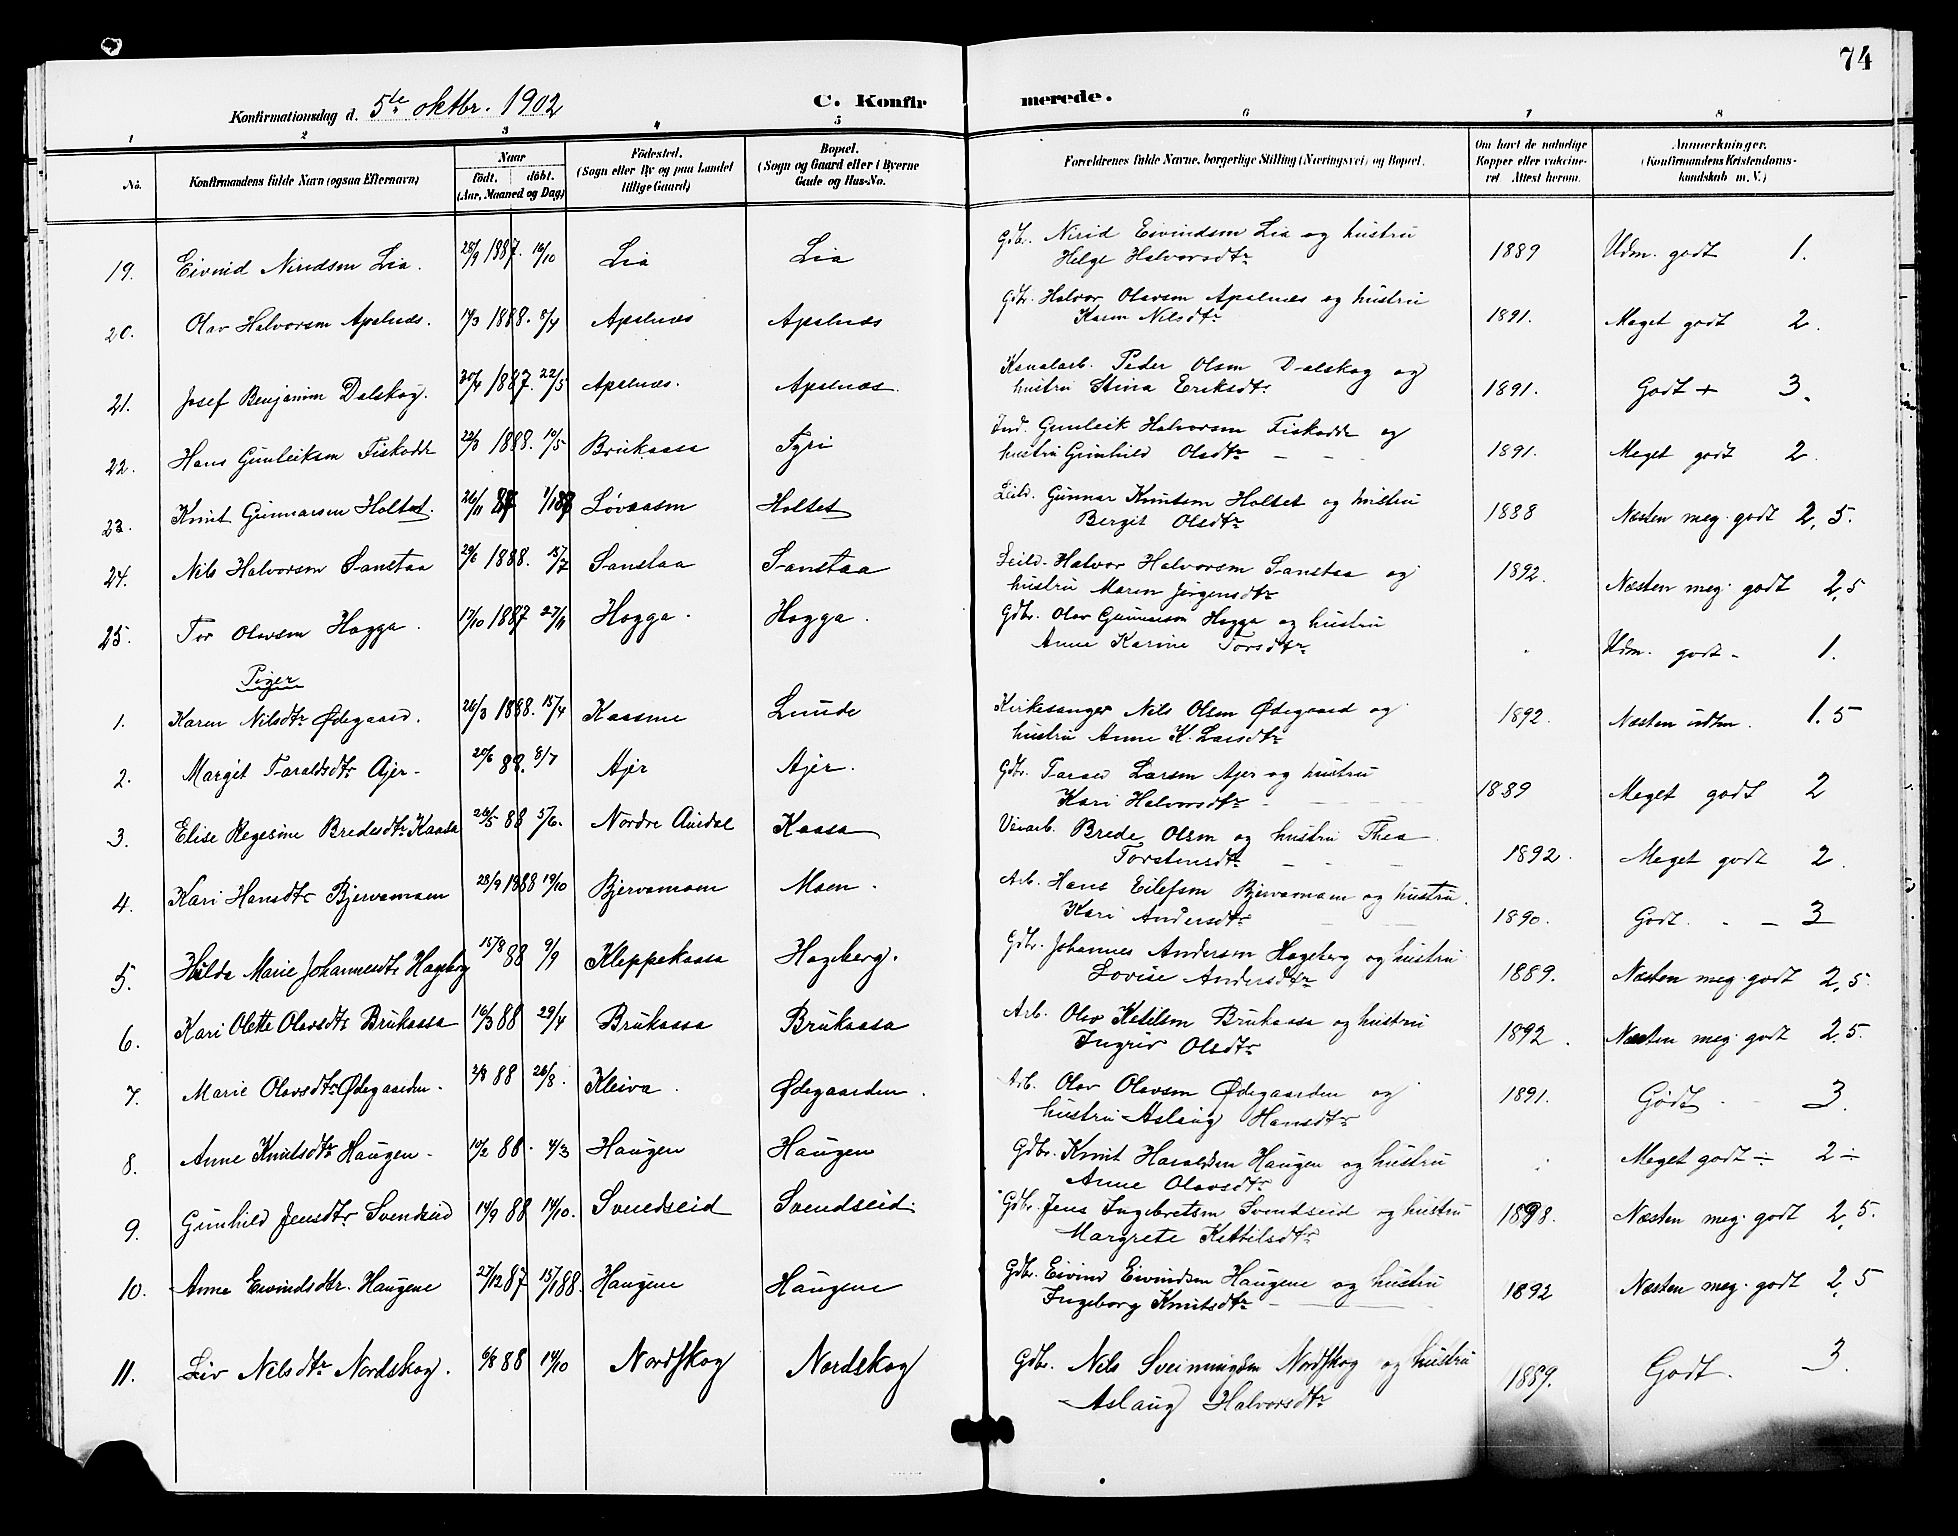 74
Konfirmationsdag d. 5te oktbr. 1902 C. Konfir merede.
1 2 3 4 5 6 7 8
No. Konfirmandens fulde Navn (ogsaa Efternavn) Naar født, døbt. (Aar, Maaned og Dag) Fødested. (Sogn eller By og paa Landet tillige Gaard) Bopæl. (Sogn og Gaard eller i Byerne Gade og Hus-No. Forældrenes fulde Navne, borgerlige Stilling (Næringsvei) og Bopæl. Om havt de naturlige Kopper eller vakcineret. Attest herom. Anmerkninger. (Konfirmandens Kristendomskundskab m. V.)
19. Eivind Niridsen Lia. 28/9 1887. 16/10 Lia Lia Gdbr. Nirid Eivindsen Lia og hustru 1889 Udm. godt 1.
Helge Halvorsdtr
20. Olav Halvorsen Apalnæs. 1888. Apalnæs Apalnæs Gdbr. Halvor Olavsen Apalnæs og hustru 1891. Meget godt 2.
Karen Nilsdtr
21. Josef Benjamin Dalskog. 30/4 1887. 22/5 Apalnæs. Apalnæs. Kanalarb. Peder Olsen Dalskog og 1891. Godt + 3.
hustru Stina Eriksdtr
22. Hans Gunleiksen Fiskodde 22/3 1888. 10/5 Brukaasa Tyri Ind. Gunleik Halvorsen Fiskodde og 1891. Meget godt 2.
hustru Gunhild Olsdtr
23. Knut Gunnarsen Holtet. 26/11 87 Løvaasen Holtet Leil. Gunnar Knutsen Holtet og hustru 1888 Næsten meg. godt 2,5.
Bergit Olsdtr
24. Nils Halvorsen Sanstaa 29/6 1888. 15/7 Sanstaa Sanstaa Leil. Halvor Halvorsen Sanstaa og 1892. Næsten meg. godt 2,5
hustru Maren Jørgensdtr
25. Tor Olavsen Hogga. 17/10 1887 27/11 Hogga. Hogga. Gdbr. Olav Gunnarson Hogga og hustru Udm. godt 1.
Anne Karine Torsdtr
Piger
1. Karen Nilsdtr Ødegaard. 26/3 1888. 15/4 Kaasene Lunde Kirkesanger Nils Olsen Ødegaard og 1892. Næsten udm. 1.5
hustru Anne K. Larsdtr
2. Margit Taraldsdtr Ajer 20/6 88. 8/7 Ajer Ajer. Gdbr. Larsen Ajer og hustru 1889 Meget godt 2
Kari Halvorsdtr
3. Elise Regesine Bredesdtr Kaasa 26/5 88 5/6. Nordre Aurdal Kaasa Brede Olsen og hustru Thea 1892. Meget godt 2.
Torstensdtr
4. Kari Hansdtr Bjervamoen 28/9 1888 19/10 Bjervamoen Moen. Arb. Hans Eilefsen Bjervamoen og hustru 1890. Godt. 3
Kari Andersdtr
5. Hilda Marie Johannesdtr Hageberg 15/8 88 9/9 Kleppekaasa Hageberg. Gdbr. Johannes Andersen Hageberg og hustru 1889. Næsten meg. godt 2,5.
Lovise Andersdtr
6. Kari Olette Olavsdtr Brukaasa 16/3 88 29/4 Brukaasa Brukaasa Arb. Olav Ketilsen Brukaasa og hustru 1892. Næsten meg. godt 2,5.
Ingrid Olsdtr
7. Marie Olavsdtr Ødegaarden. 88 26/8. Kleiva. Ødegaarden. Arb. Olav Olavsen Ødegaarden og 1891. Godt 3.
hustru Aslaug Hansdtr
8. Anne Knutsdtr Haugen. 10/2 88. 4/3 Haugen Haugen Gdbr. Knut Haraldsen Haugen og hustru Meget godt ÷ 2÷
Anne Olavsdtr
9. Gunhild Jensdtr Svendseid 14/9 88 14/10. Svendseid Svendseid. Gdbr. Jens Ingebretsen Svendseid og hustru 1898. Næsten meg. godt 2,5.
Margrete Kettilsdtr
10. Anne Eivindsdtr. Haugene 27/12 87 15/1 88. Haugene Haugene Gdbr. Eivind Eivindsen Haugene og hustru 1892 Næsten meg. godt 2,5
Ingeborg Knutsdtr
11. Liv Nilsdtr Nordskog. 6/8 88 14/10 Nordskog Nordskog Gdbr. Nils Sveinungsen Nordskog og hustru 1889. Godt. 3.
Aslaug Halvorsdtr